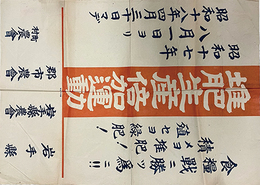 食糧戦ニ勝ツ為ニ!!
積メヨ堆肥!
殖セヨ緑肥!
堆肥生産倍加運動
昭和十七年八月一日ヨリ
昭和十八年四月三十日マデ
岩手縣
岩手縣農會
郡市農會
町村農會